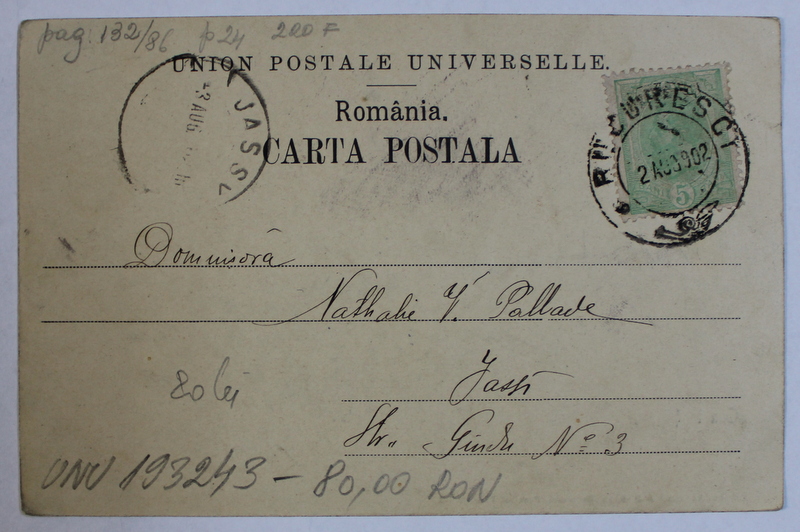 pag. 132/86 p24 220 F
UNION POSTALE UNIVERSELLE.
România.
CARTA POSTALA
JASSI
3 AUG
BUCURESCI
2 AUG 902
5
Domnisóra
Nathalie V. Pallade
Jassi
Str. No 3
80 lei
UNU 193243 - 80,00 RON